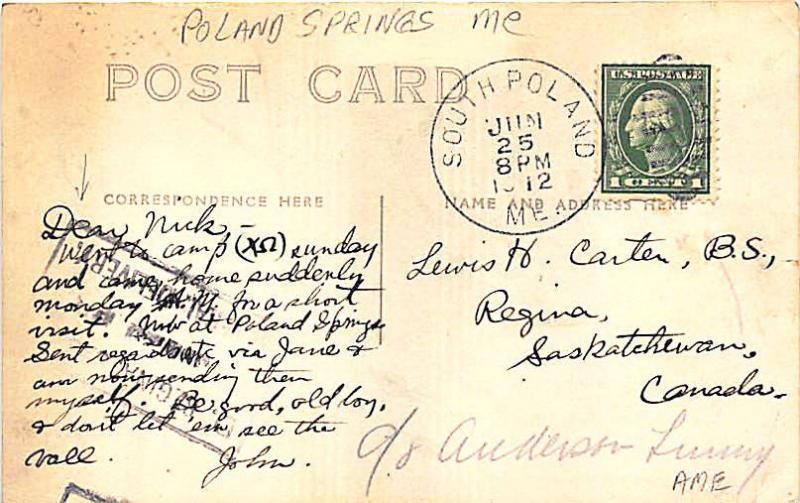 POLAND SPRINGS Me
POST CARD
SOUTH POLAND
JUN
25
8PM
1912
ME.
U.S. POSTAGE
1 CENT 1
CORRESPONDENCE HERE
NAME AND ADDRESS HERE
Dear Nick,-
Went to camp (ΧΩ) sunday
and came home suddenly
monday A.M. for a short
visit. Now at Poland Springs
Sent regards etc via Jane &
am now sending them
myself. Be good, old boy,
& don't let 'em see the
roll. John.
Lewis H. Carter, B.S.,
Regina,
Saskatchewan,
Canada.
c/o Anderson
AME